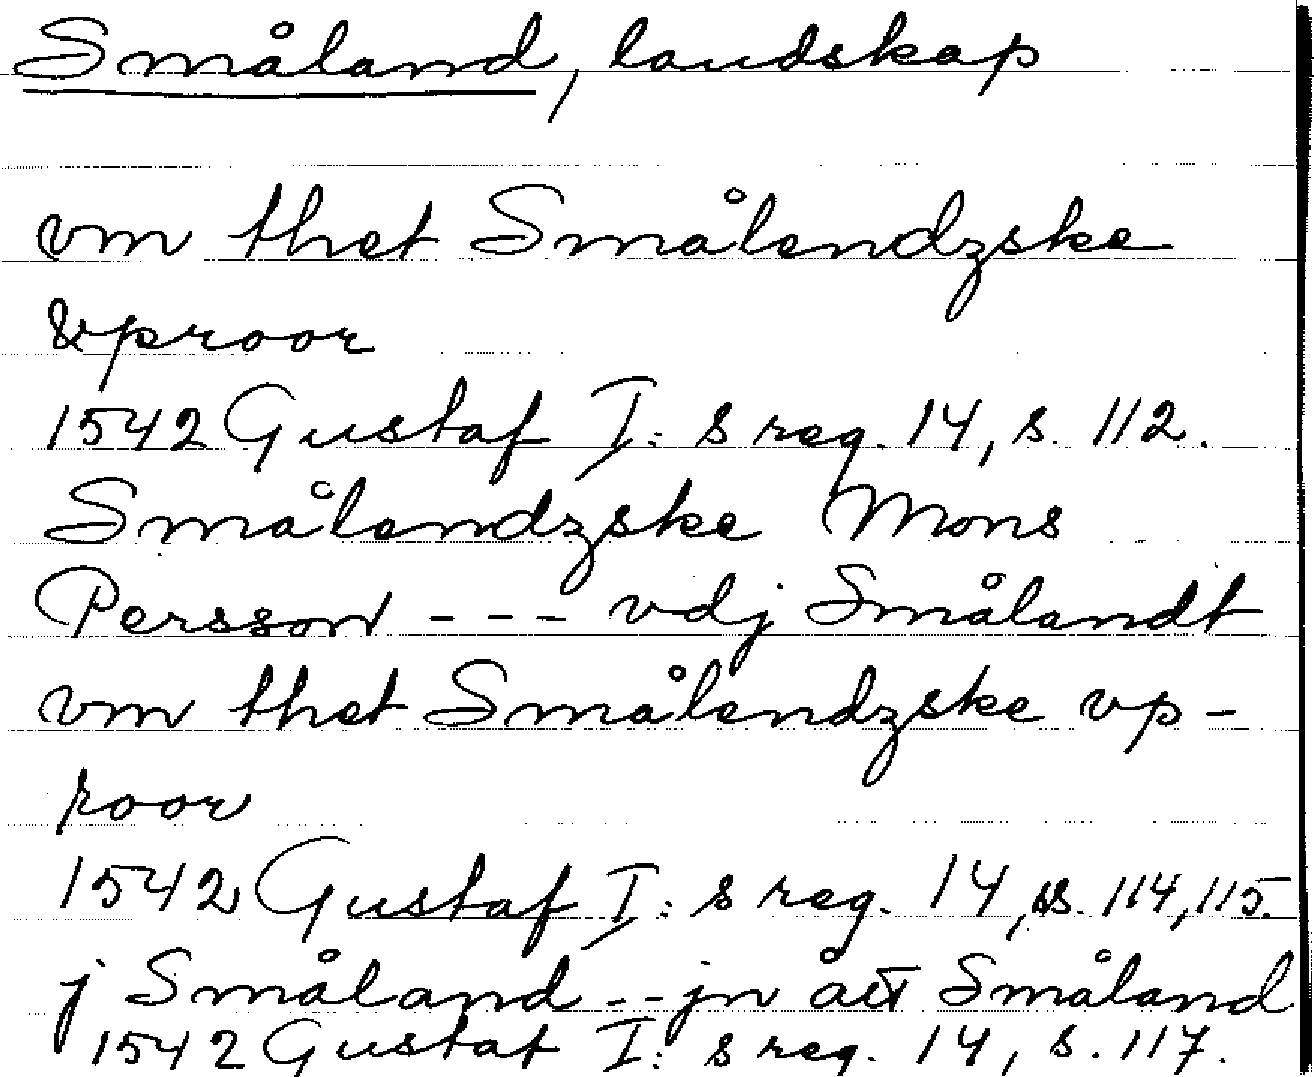 Småland, landskap
vm thet Smålendzske
Vproor
1542 Gustaf I:s reg. 14, s. 112.
Smålendzske Mons
Persson --- vdj Smålandt
vm thet Smålendzske vp-
roor
1542 Gustaf I:s reg. 14, s. 114, 115.
j Småland -- jn ått Småland
1542 Gustaf I:s reg. 14, s. 117.